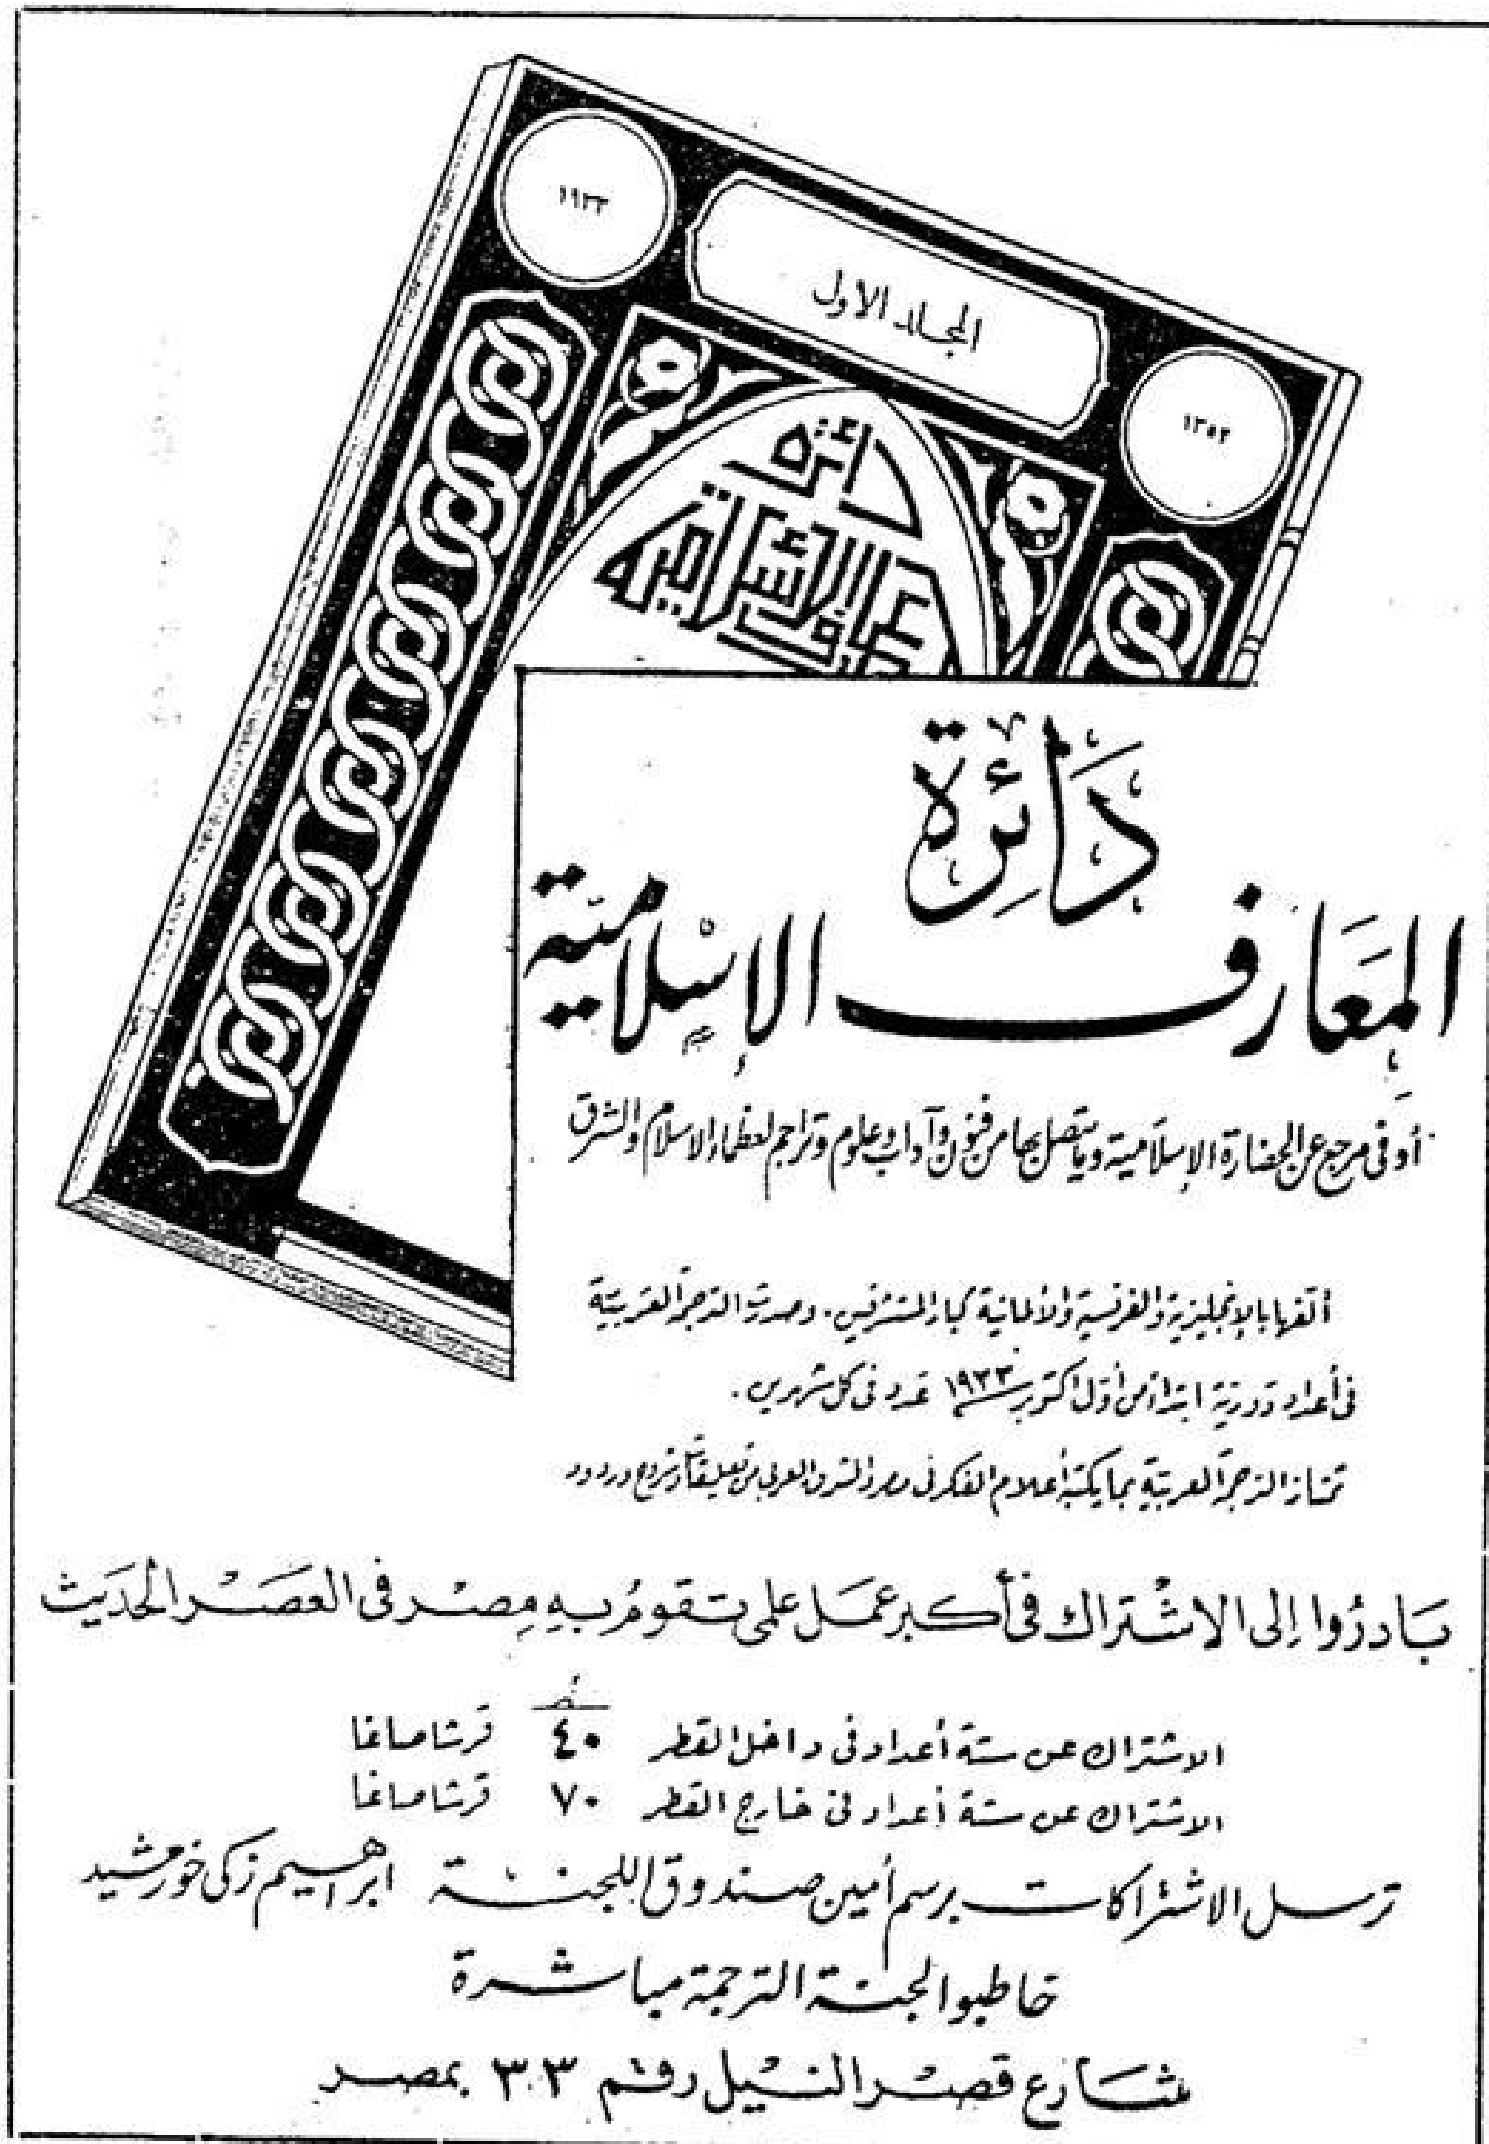 ١٩٣٣
المجلد الاول
١٣٥٢
دائرة
المعارف الإسلامية
دَائِرَة
المعَارف الإسْلاميّة
أوفى مرجع عن الحضارة الإسلامية وما يتصل بها من فنون وآداب وعلوم وتراجم لعظماء الاسلام والشرق
ألفها بالإنجليزية والفرنسية والألمانية كبار المستشرقين. وصدرت الترجمة العربية
فى أعداد دورية ابتداء من أول اكتوبر ١٩٣٣ عدد فى كل شهرين.
تمتاز الترجمة العربية بما يكتبه أعلام الفكر فى مصر والشرق العربى من تعليقات وشروح وردود
بَادرُوا إلى الاشْتراك فى أكبر عمَل علمى تقومُ بهِ مِصْر فى العَصْر الحَديث
الاشتراك عن ستة أعداد فى داخل القطر ٤٠ قرشا صاغا
الاشتراك عن ستة أعداد فى خارج القطر ٧٠ قرشا صاغا
ترسل الاشتراكات برسم أمين صندوق اللجنة ابراهيم زكى خورشيد
خاطبوا لجنة الترجمة مباشرة
شارع قصْر النيْل رقم ٣٣ بمصر